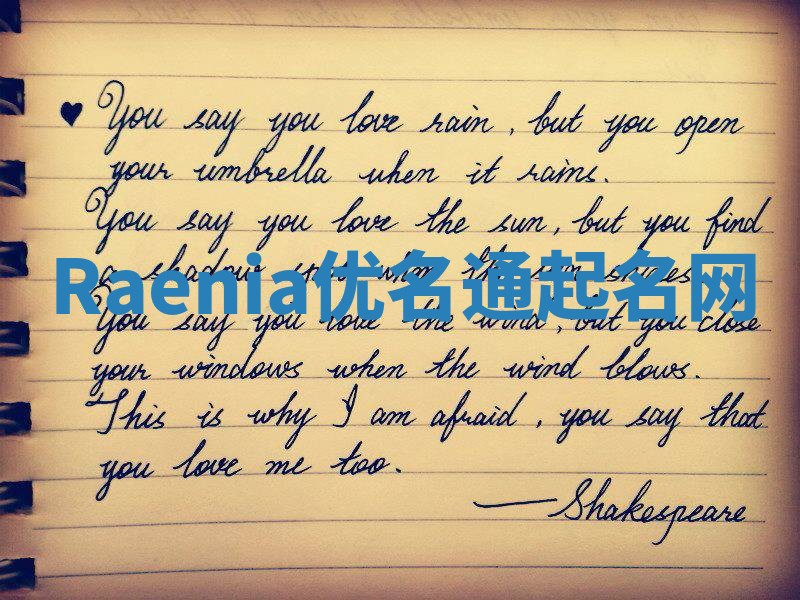 ♥ You say you love rain, but you open
your umbrella when it rains.
You say you love the sun, but you find
a shadow spot when the sun shines.
Raenia优名通起名网
You say you love the wind, but you close
your windows when the wind blows.
This is why I am afraid, you say that
you love me too.
—Shakespeare